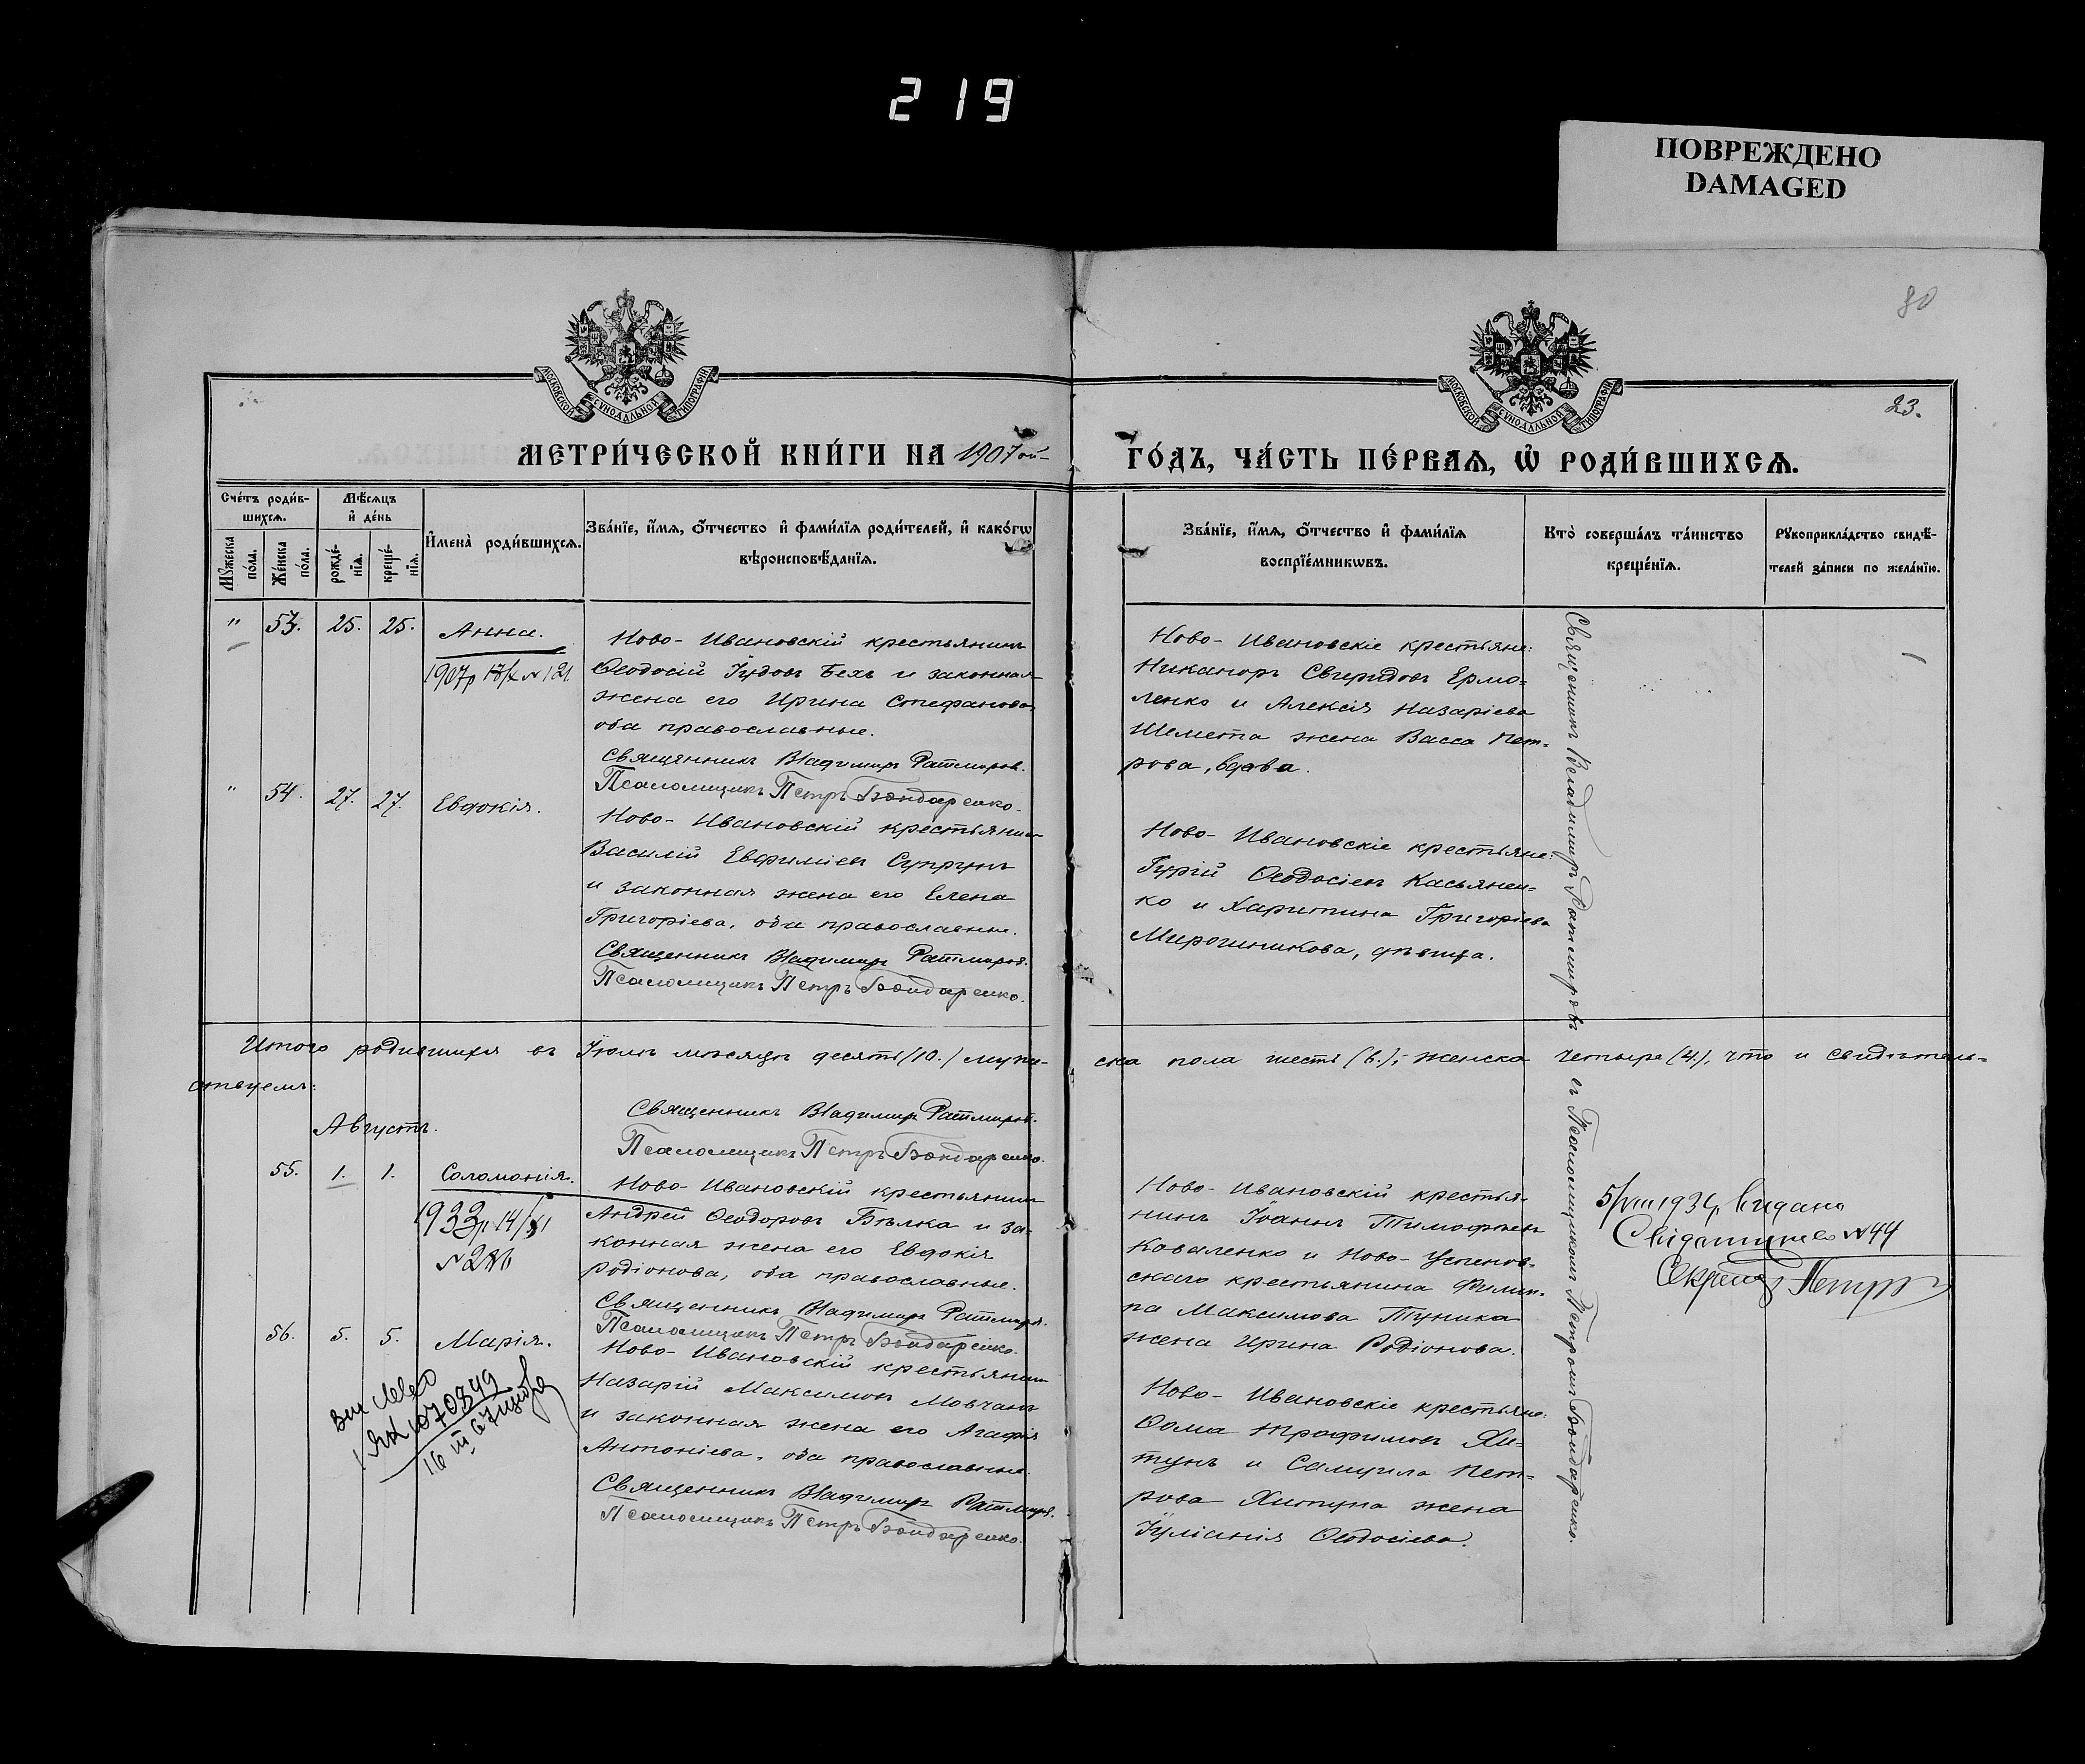 219
ПОВРЕЖДЕНО
DAMAGED
80
МОСКОВСКОЙ СУНОДАЛЬНОЙ ТИПОГРАФІИ
МОСКОВСКОЙ СУНОДАЛЬНОЙ ТИПОГРАФІИ
23.
МЕТРИ́ЧЕСКОЙ КНИ́ГИ НА 1907 ой
ГО́ДЪ, ЧА́СТЬ ПЕ́РВАѦ, Ѡ҆ РОДИ́ВШИХСѦ.
Сче́тъ роди́в-
шихсѧ.
Мѣ́сѧцъ
и҆ де́нь
Мꙋ́жеска
по́ла.
Же́нска
по́ла.
рожде́-
нїѧ.
креще́-
нїѧ.
И҆мена̀ роди́вшихсѧ.
Зва́нїе, и҆́мѧ, ѻ҆́тчество и҆ фами́лїѧ роди́телей, и҆ како́гѡ
вѣроисповѣ́данїѧ.
Зва́нїе, и҆́мѧ, ѻ҆́тчество и҆ фами́лїѧ
воспрїе́мникѡвъ.
Кто̀ соверша́лъ та́инство
креще́нїѧ.
Рꙋкоприкла́дство свидѣ́-
телей за́писи по жела́нїю.
" 53. 25. 25. Анна.
1907р № 121
Ново-Ивановскій крестьянинъ
Ѳеодосій Іудовъ Бехъ и законная
жена его Ирина Стефанова
оба православные.
Священникъ Владимиръ Ратмировъ.
Псаломщикъ Петръ Бондаренко.
Ново-Ивановскіе крестьяне:
Никаноръ Свиридовъ Ермо=
ленко и Алексія Назаріева
Шемета жена Васса Пет=
рова, вдова.
" 54. 27. 27. Евдокія.
Ново-Ивановскій крестьянинъ
Василій Евфиміевъ Супрунъ
и законная жена его Елена
Григоріева, оба православные.
Священникъ Владимиръ Ратмировъ.
Псаломщикъ Петръ Бондаренко.
Ново-Ивановскіе крестьяне:
Гурій Ѳеодосіевъ Касьянен=
ко и Харитина Григоріева
Мирошникова, дѣвица.
Священникъ Владимиръ Ратмировъ съ Псаломщикомъ Петромъ Бондаренко.
Итого родившихся въ Іюлѣ мѣсяцѣ десять (10.) муже-
ска пола шесть (6.), женска четыре (4), что и свидѣтель=
ствуемъ:
Священникъ Владимиръ Ратмировъ.
Псаломщикъ Петръ Бондаренко.
Августъ.
55. 1. 1. Соломонія.
1933р 14/XI
Ново-Ивановскій крестьянинъ
Андрей Ѳеодоровъ Бѣлка и за=
конная жена его Евдокія
Родіонова, оба православные.
Священникъ Владимиръ Ратмировъ.
Псаломщикъ Петръ Бондаренко.
Ново-Ивановскій крестья-
нинъ Іоаннъ Тимофѣевъ
Коваленко и Ново-Успенов-
скаго крестьянина Филип-
па Максимова Туника
жена Ирина Родіонова.
5/VIII 1934 видано
Свідоцтво №44
Секретар
56. 5. 5. Марія.
16 III 67
Ново-Ивановскій крестьянинъ
Назарій Максимовъ Мовчанъ
и законная жена его Агафія
Антоніева, оба православные.
Священникъ Владимиръ Ратмировъ.
Псаломщикъ Петръ Бондаренко.
Ново-Ивановскіе крестьяне:
Ѳома Трофимовъ Хи=
тунъ и Самуила Пет=
рова Хитуна жена
Іуліанія Ѳеодосіева.